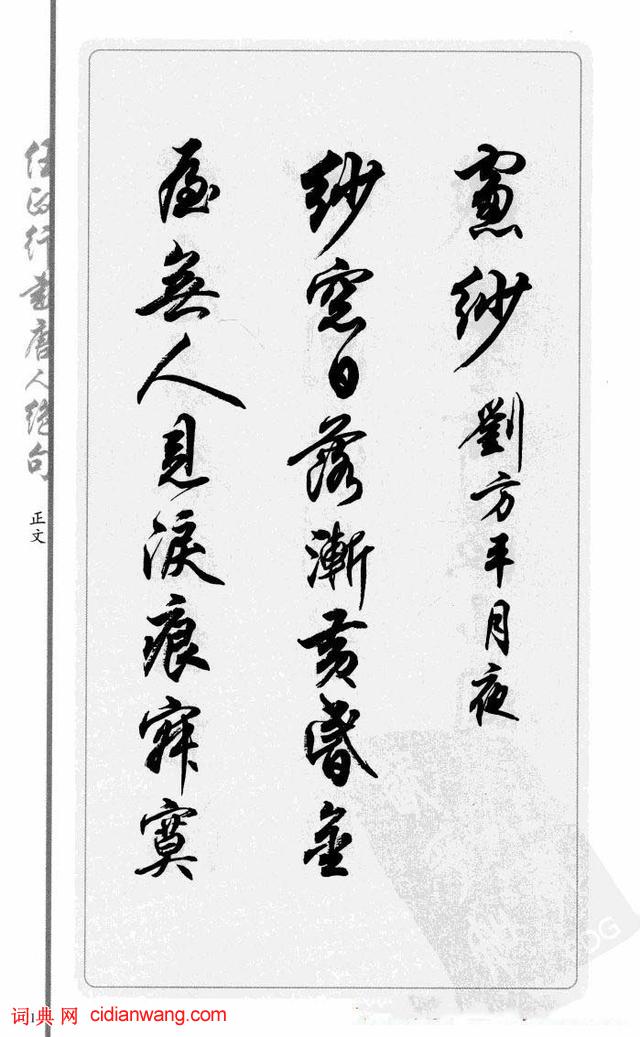 窗紗 劉方平月夜
紗窗日落漸黃昏金
屋無人見淚痕寂寞
任政行書唐人絕句
正文
1
词典网 cidianwang.com